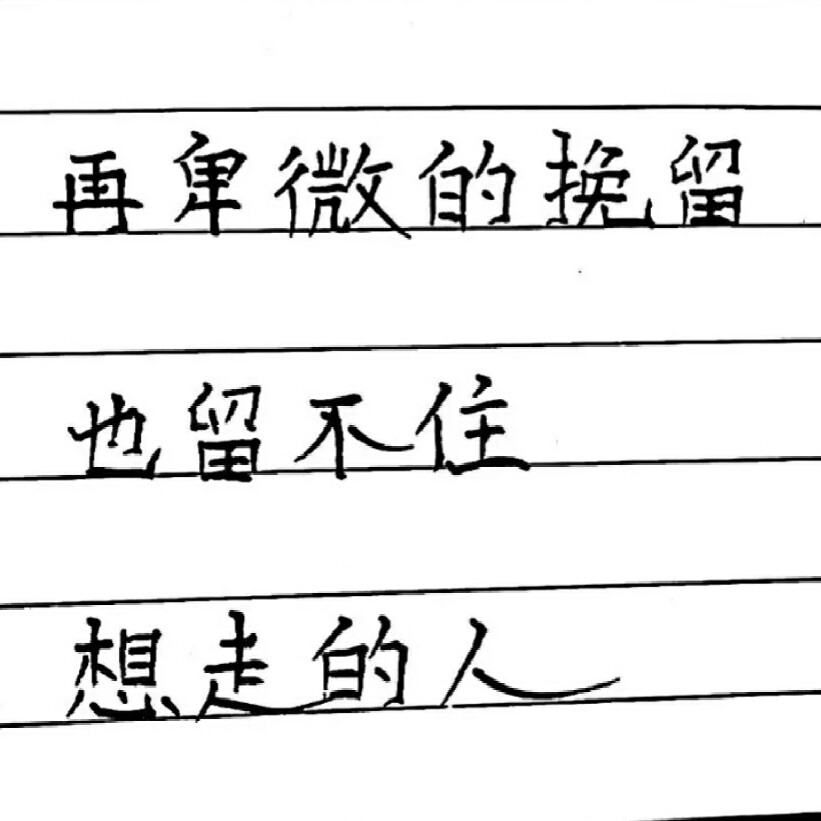 再卑微的挽留
也留不住
想走的人